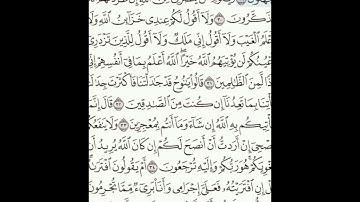 ذَكَّرُونَ ٣٠ وَلَآ أَقُولُ لَكُمْ عِندِى خَزَآئِنُ ٱللَّهِ وَلَ
عْلَمُ ٱلْغَيْبَ وَلَآ أَقُولُ إِنِّى مَلَكٌ وَلَآ أَقُولُ لِلَّذِينَ تَزْدَرِىٓ
عْيُنُكُمْ لَن يُؤْتِيَهُمُ ٱللَّهُ خَيْرًا ٱللَّهُ أَعْلَمُ بِمَا فِىٓ أَنفُسِهِمْ إِنِّ
ذًا لَّمِنَ ٱلظَّٰلِمِينَ ٣١ قَالُوا۟ يَٰنُوحُ قَدْ جَٰدَلْتَنَا فَأَكْثَرْتَ جِدَٰ
أْتِنَا بِمَا تَعِدُنَآ إِن كُنتَ مِنَ ٱلصَّٰدِقِينَ ٣٢ قَالَ إِنَّمَ
أْتِيكُم بِهِ ٱللَّهُ إِن شَآءَ وَمَآ أَنتُم بِمُعْجِزِينَ ٣٣ وَلَا يَنفَعُكُ
صْحِىٓ إِنْ أَرَدتُّ أَنْ أَنصَحَ لَكُمْ إِن كَانَ ٱللَّهُ يُرِيدُ أَ
غْوِيَكُمْ هُوَ رَبُّكُمْ وَإِلَيْهِ تُرْجَعُونَ ٣٤ أَمْ يَقُولُونَ ٱفْتَرَىٰ
لْ إِنِ ٱفْتَرَيْتُهُۥ فَعَلَىَّ إِجْرَامِى وَأَنَا۠ بَرِىٓءٌ مِّمَّا تُجْرِمُونَ